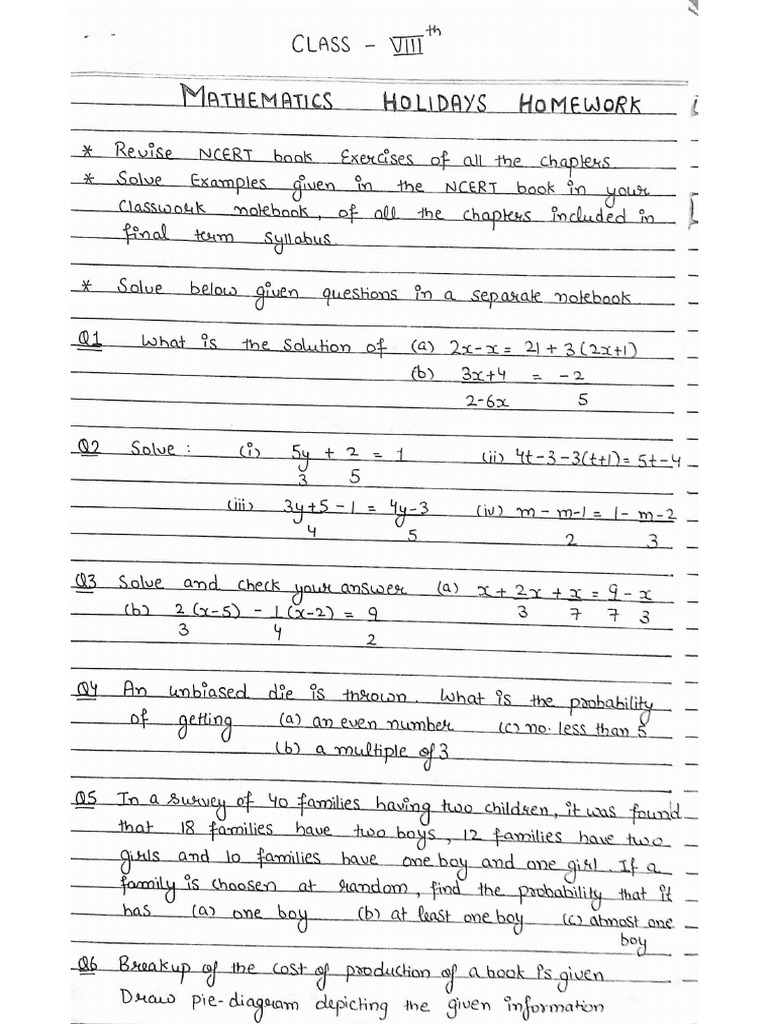 CLASS - VIIIth
MATHEMATICS HOLIDAYS HOMEWORK
* Revise NCERT book Exercises of all the chapters.
* Solve Examples given in the NCERT book in your
Classwork notebook, of all the chapters included in
final term syllabus.
* Solve below given questions in a separate notebook
Q1 What is the solution of (a) 2x-x = 21 + 3(2x+1)
(b) 3x+4 = -2
2-6x 5
Q2 Solve : (i) 5y + 2 = 1 (ii) 4t-3-3(t+1) = 5t-4
3 5
(iii) 3y+5 - 1 = 4y-3 (iv) m - m-1 = 1 - m-2
4 5 2 3
Q3 Solve and check your answer (a) x + 2x + x = 9 - x
3 7 7 3
(b) 2(x-5) - 1(x-2) = 9
3 4 2
Q4 An unbiased die is thrown. What is the probability
of getting (a) an even number (c) no. less than 5
(b) a multiple of 3
Q5 In a survey of 40 families having two children, it was found
that 18 families have two boys, 12 families have two
girls and 10 families have one boy and one girl. If a
family is choosen at random, find the probability that it
has (a) one boy (b) at least one boy (c) atmost one
boy
Q6 Breakup of the cost of production of a book is given
Draw pie-diagram depicting the given information